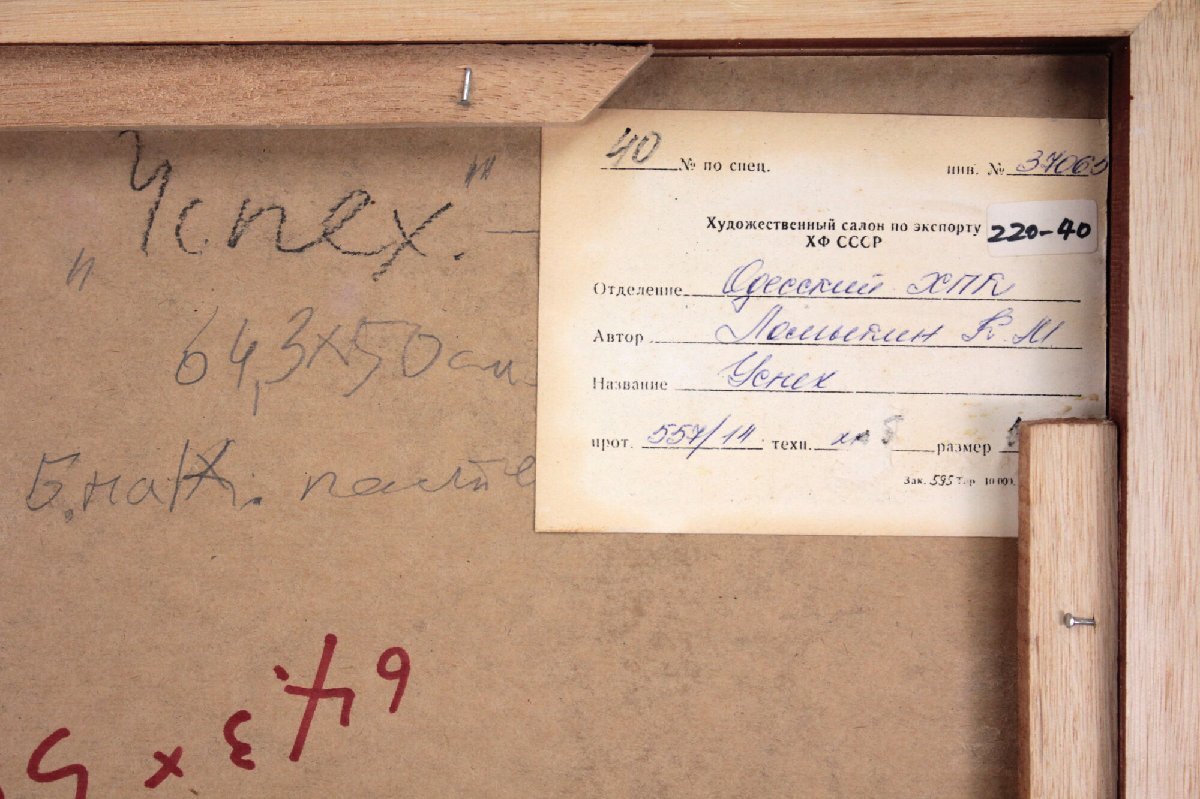 "Успех."
64,3х50см
Б. на К. пасте
40 № по спец. инв. № 37065
Художественный салон по экспорту
ХФ СССР
220-40
Отделение Одесский ХПК
Автор Ломыкин К М
Название Успех
прот. 557/14 техн. размер
Зак. 595 Тир. 10 000
64,3 x 5